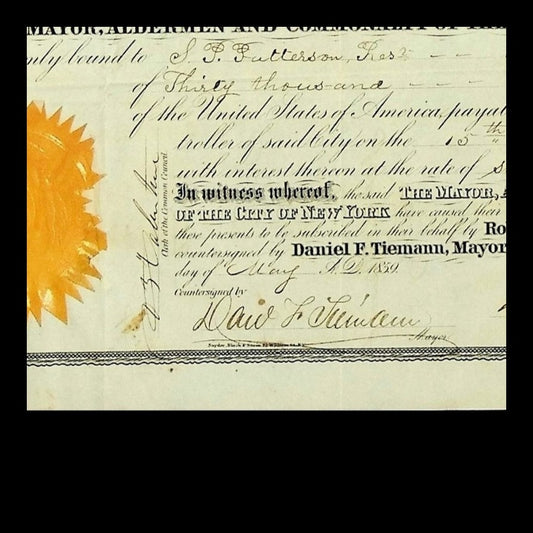 MAYOR, ALDERMEN AND COMMONALTY OF THE
nly bound to S. P. Patterson, Prest
of Thirty thousand
of the United States of America, payab
troller of said City on the 15 th
with interest thereon at the rate of s
In witness whereof, the said THE MAYOR, A
OF THE CITY OF NEW YORK have caused their
these presents to be subscribed in their behalf by Ro
countersigned by Daniel F. Tiemann, Mayor
day of May A.D. 1859.
Countersigned by
Dan F Tiemann
Mayor
Snyder, Black & Sturn 92 William St. N.Y.
Clerk of the Common Council.